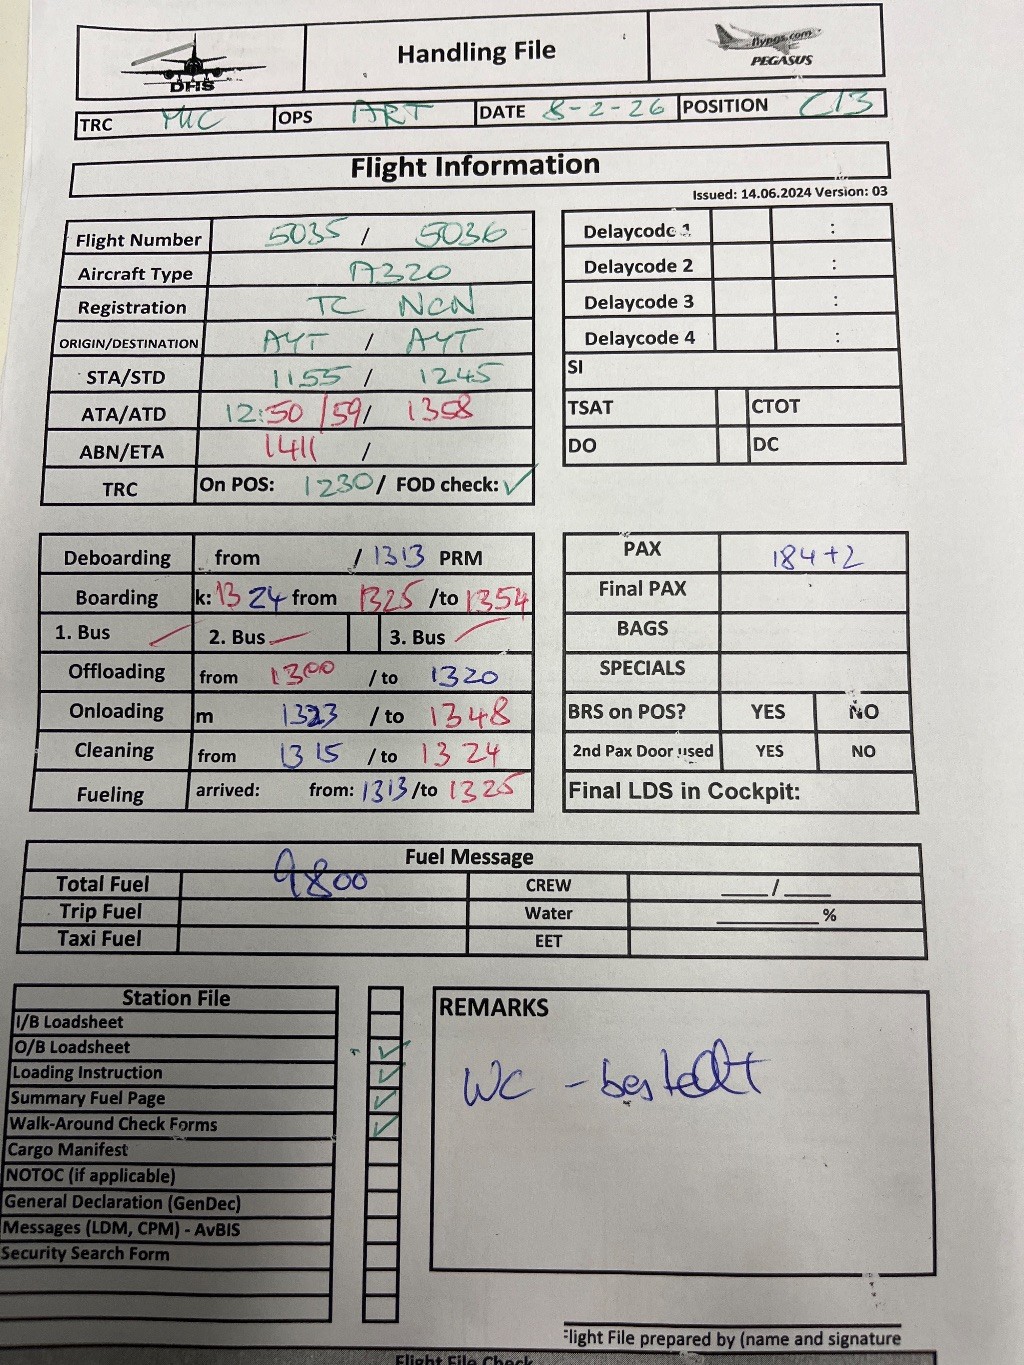 DHS
Handling File
flypgs.com
PEGASUS
TRC YUC OPS ART DATE 8-2-26 POSITION C13
Flight Information
Issued: 14.06.2024 Version: 03
Flight Number 5035 / 5036
Aircraft Type A320
Registration TC NCN
ORIGIN/DESTINATION AYT / AYT
STA/STD 1155 / 1245
ATA/ATD 12:50 /59/ 1358
ABN/ETA 1411 /
TRC On POS: 1230/ FOD check: ✓
Delaycode 1 :
Delaycode 2 :
Delaycode 3 :
Delaycode 4 :
SI
TSAT CTOT
DO DC
Deboarding from / 1313 PRM
Boarding k: 1324 from 1325 /to 1354
1. Bus 2. Bus 3. Bus
Offloading from 1300 / to 1320
Onloading m 1323 / to 1348
Cleaning from 1315 / to 1324
Fueling arrived: from: 1313 /to 1325
PAX 184+2
Final PAX
BAGS
SPECIALS
BRS on POS? YES NO
2nd Pax Door used YES NO
Final LDS in Cockpit:
Fuel Message
Total Fuel 9800 CREW ____/____
Trip Fuel Water ________%
Taxi Fuel EET
Station File
I/B Loadsheet
O/B Loadsheet ✓
Loading Instruction ✓
Summary Fuel Page ✓
Walk-Around Check Forms ✓
Cargo Manifest
NOTOC (if applicable)
General Declaration (GenDec)
Messages (LDM, CPM) - AvBIS
Security Search Form
REMARKS
WC - bestellt
Flight File prepared by (name and signature
Flight File Check